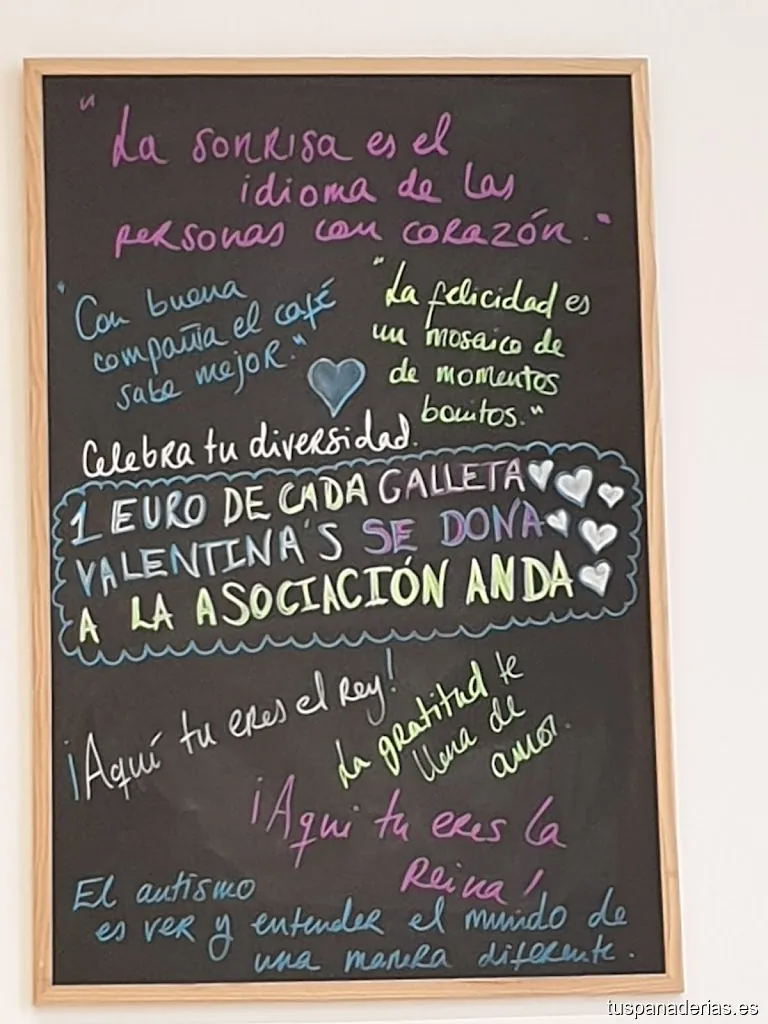 "La sonrisa es el
idioma de las
personas con corazón."
"Con buena
compañia el café
sabe mejor."
"La felicidad es
un mosaico de
de momentos
bonitos."
Celebra tu diversidad.
1 EURO DE CADA GALLETA
VALENTINA'S SE DONA
A LA ASOCIACIÓN ANDA
¡Aquí tu eres el Rey!
La gratitud te
llena de
amor.
¡Aqui tu eres la
Reina!
El autismo
es ver y entender el mundo de
una manera diferente.
tuspanaderias.es